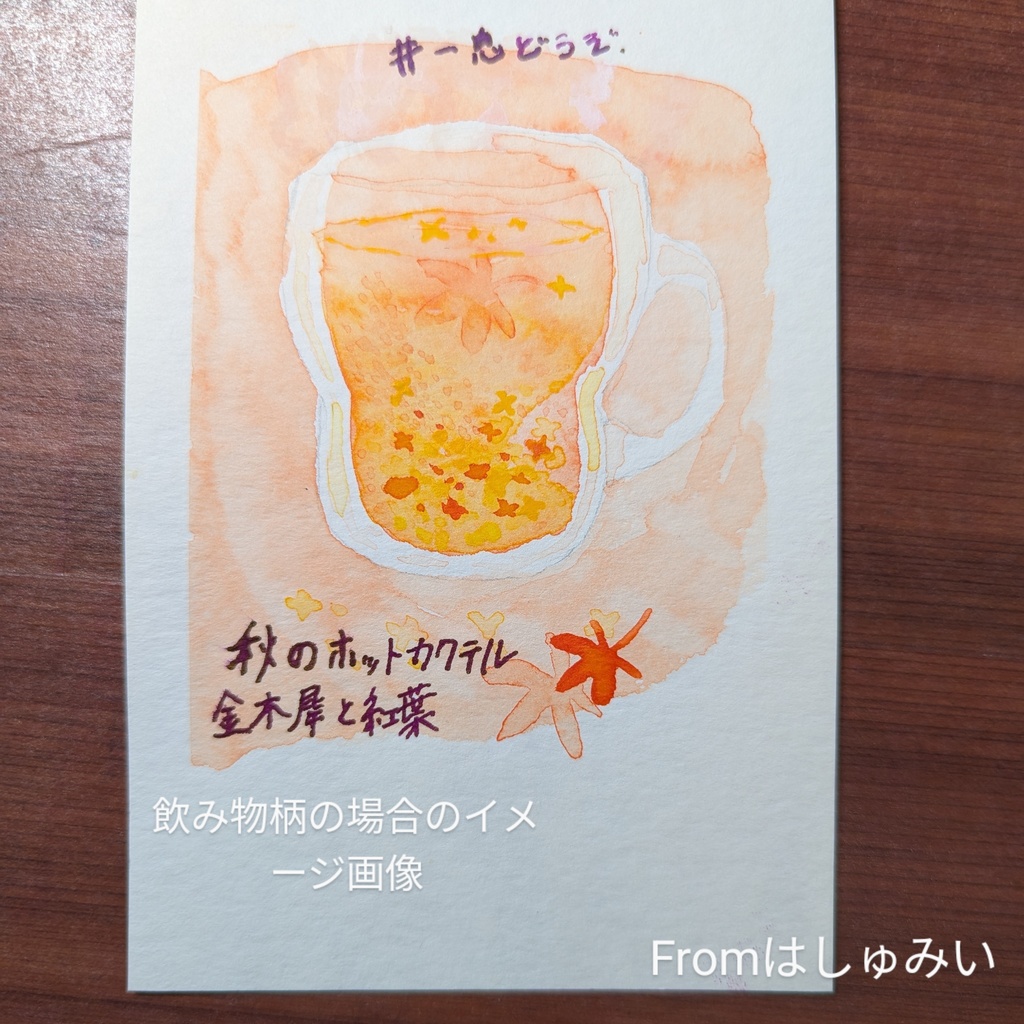 #一息どうぞ.
秋のホットカクテル
金木犀と紅葉
飲み物柄の場合のイメ
ージ画像
Fromはしゅみい